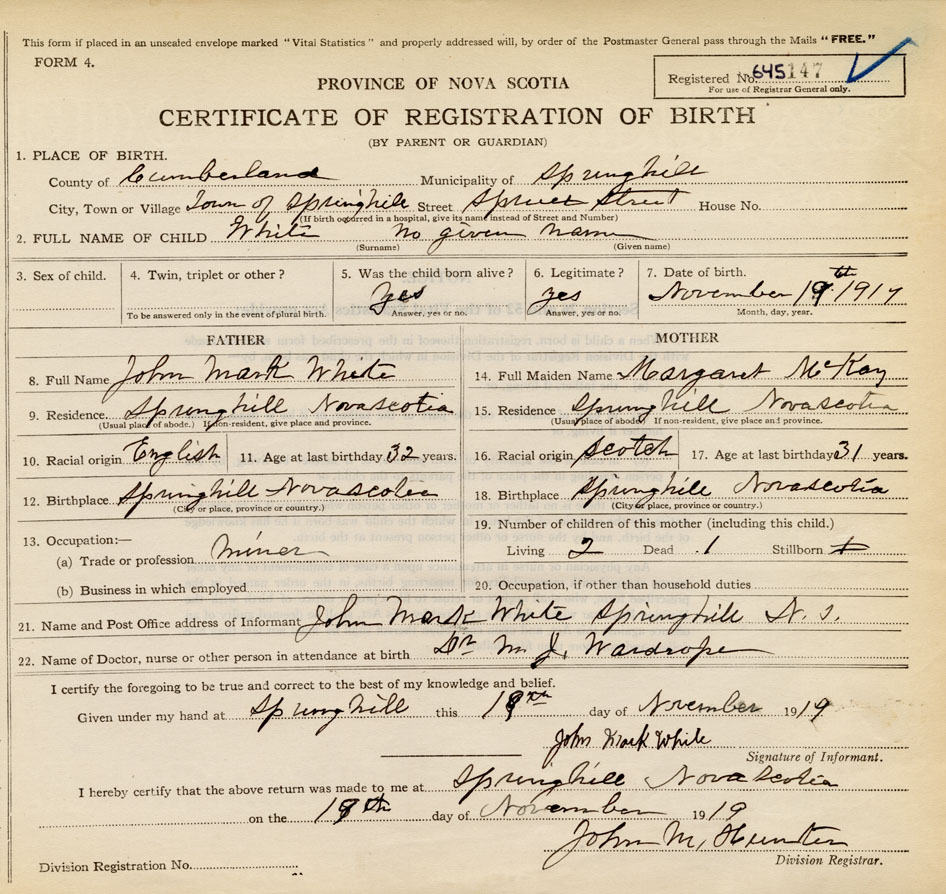 This form if placed in an unsealed envelope marked "Vital Statistics" and properly addressed will, by order of the Postmaster General pass through the Mails "FREE."
FORM 4.
Registered No. 645147
For use of Registrar General only.
PROVINCE OF NOVA SCOTIA
CERTIFICATE OF REGISTRATION OF BIRTH
(BY PARENT OR GUARDIAN)
1. PLACE OF BIRTH.
County of Cumberland Municipality of Springhill
City, Town or Village Town of Springhill Street Spruce Street House No.
(If birth occurred in a hospital, give its name instead of Street and Number)
2. FULL NAME OF CHILD White no given name
(Surname) (Given name)
3. Sex of child. 4. Twin, triplet or other? 5. Was the child born alive? 6. Legitimate? 7. Date of birth.
Yes yes November 19th 1917
To be answered only in the event of plural birth. Answer, yes or no. Answer, yes or no. Month, day, year.
FATHER MOTHER
8. Full Name John Mark White 14. Full Maiden Name Margaret McKay
9. Residence Springhill Novascotia 15. Residence Springhill Novascotia
(Usual place of abode.) If non-resident, give place and province. (Usual place of abode.) If non-resident, give place and province.
10. Racial origin English 11. Age at last birthday 32 years. 16. Racial origin Scotch 17. Age at last birthday 31 years.
12. Birthplace Springhill Novascotia 18. Birthplace Springhill Novascotia
(City or place, province or country.) (City or place, province or country.)
13. Occupation:— 19. Number of children of this mother (including this child.)
(a) Trade or profession miner Living 2 Dead 1 Stillborn
(b) Business in which employed 20. Occupation, if other than household duties
21. Name and Post Office address of Informant John Mark White Springhill N. S.
22. Name of Doctor, nurse or other person in attendance at birth Dr M J. Wardrope
I certify the foregoing to be true and correct to the best of my knowledge and belief.
Given under my hand at Springhill this day of November 1919
John Mark White
Signature of Informant.
I hereby certify that the above return was made to me at Springhill Nova Scotia
on the 19th day of November 1919
John M. Hunter
Division Registrar.
Division Registration No.